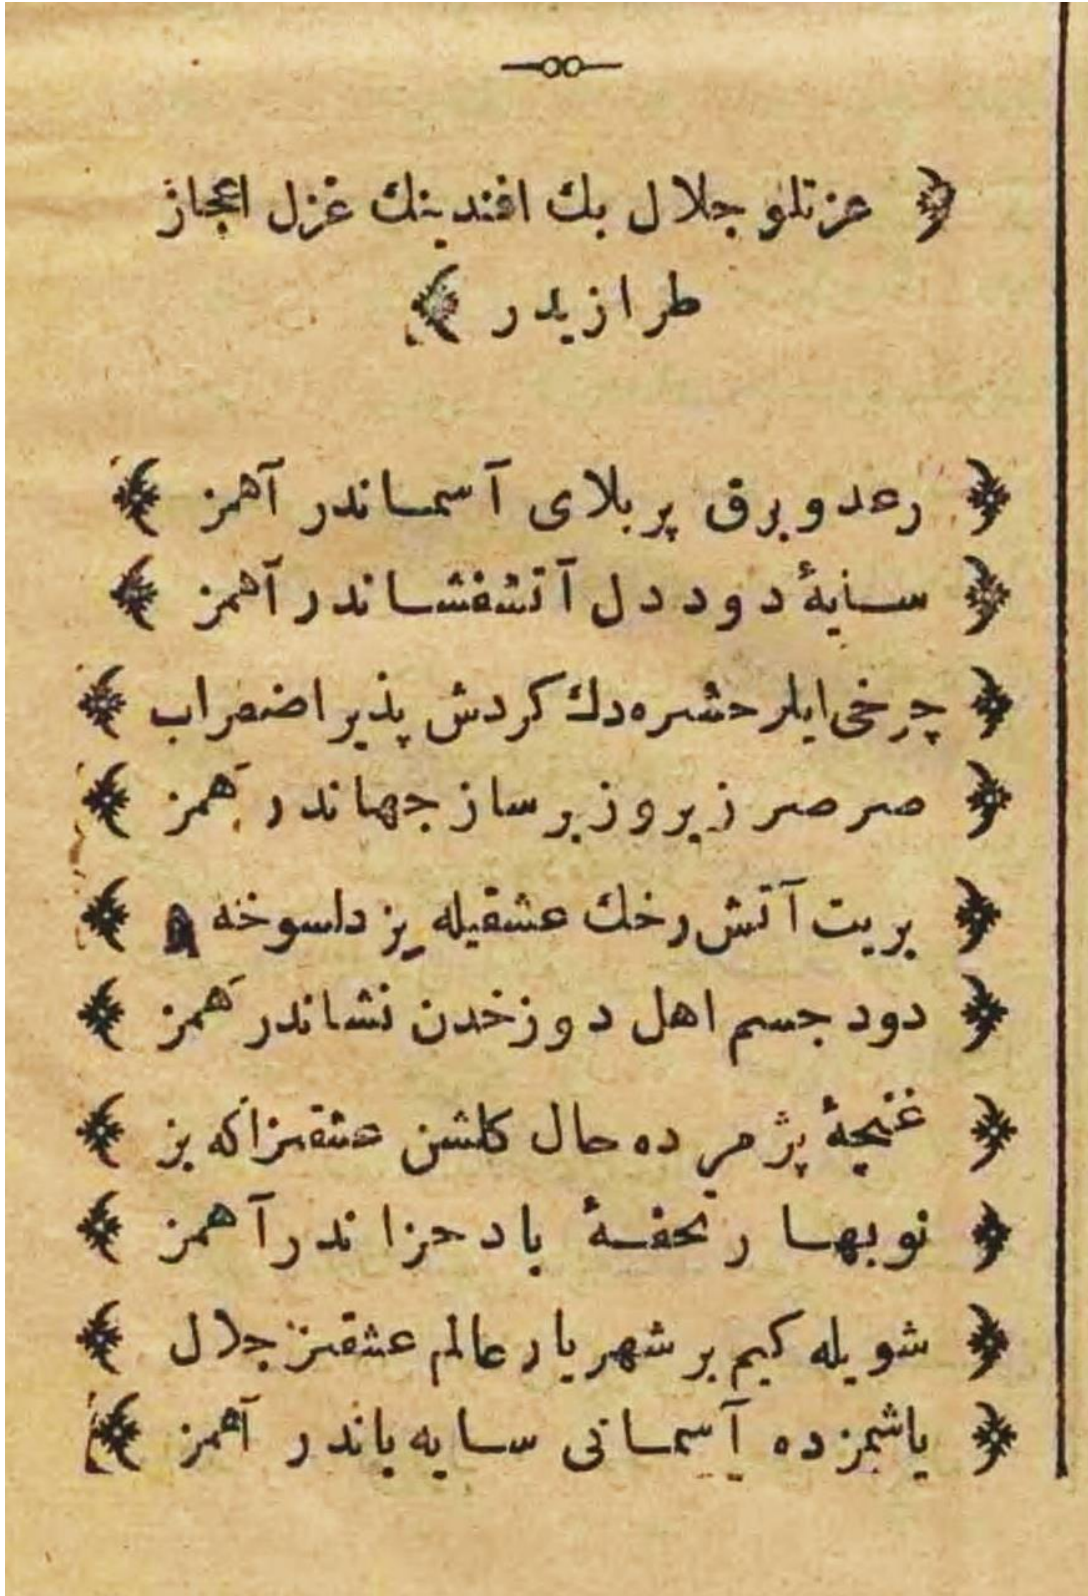 ﴿ عزتلو جلال بك افندينك غزل اعجاز
طرازيدر ﴾
﴿ رعد وبرق پر بلاى آسماندر آهمز ﴾
﴿ سايهٔ دود دل آتشفشاندر آهمز ﴾
﴿ چرخى ايلر حشره دك كردش پذير اضطراب ﴾
﴿ صرصر زير وزبر ساز جهاندر آهمز ﴾
﴿ بريت آتش رخك عشقيله يز داسوخته ﴾
﴿ دود جسم اهل دوزخدن نشاندر آهمز ﴾
﴿ غنچهٔ پژمرده حال كلشن عشقز اكه بز ﴾
﴿ نوبهار تحفهٔ باد خزاندر آهمز ﴾
﴿ شويله كيم بر شهريار عالم عشقز جلال ﴾
﴿ باشمزده آسمانى سايه باندر آهمز ﴾